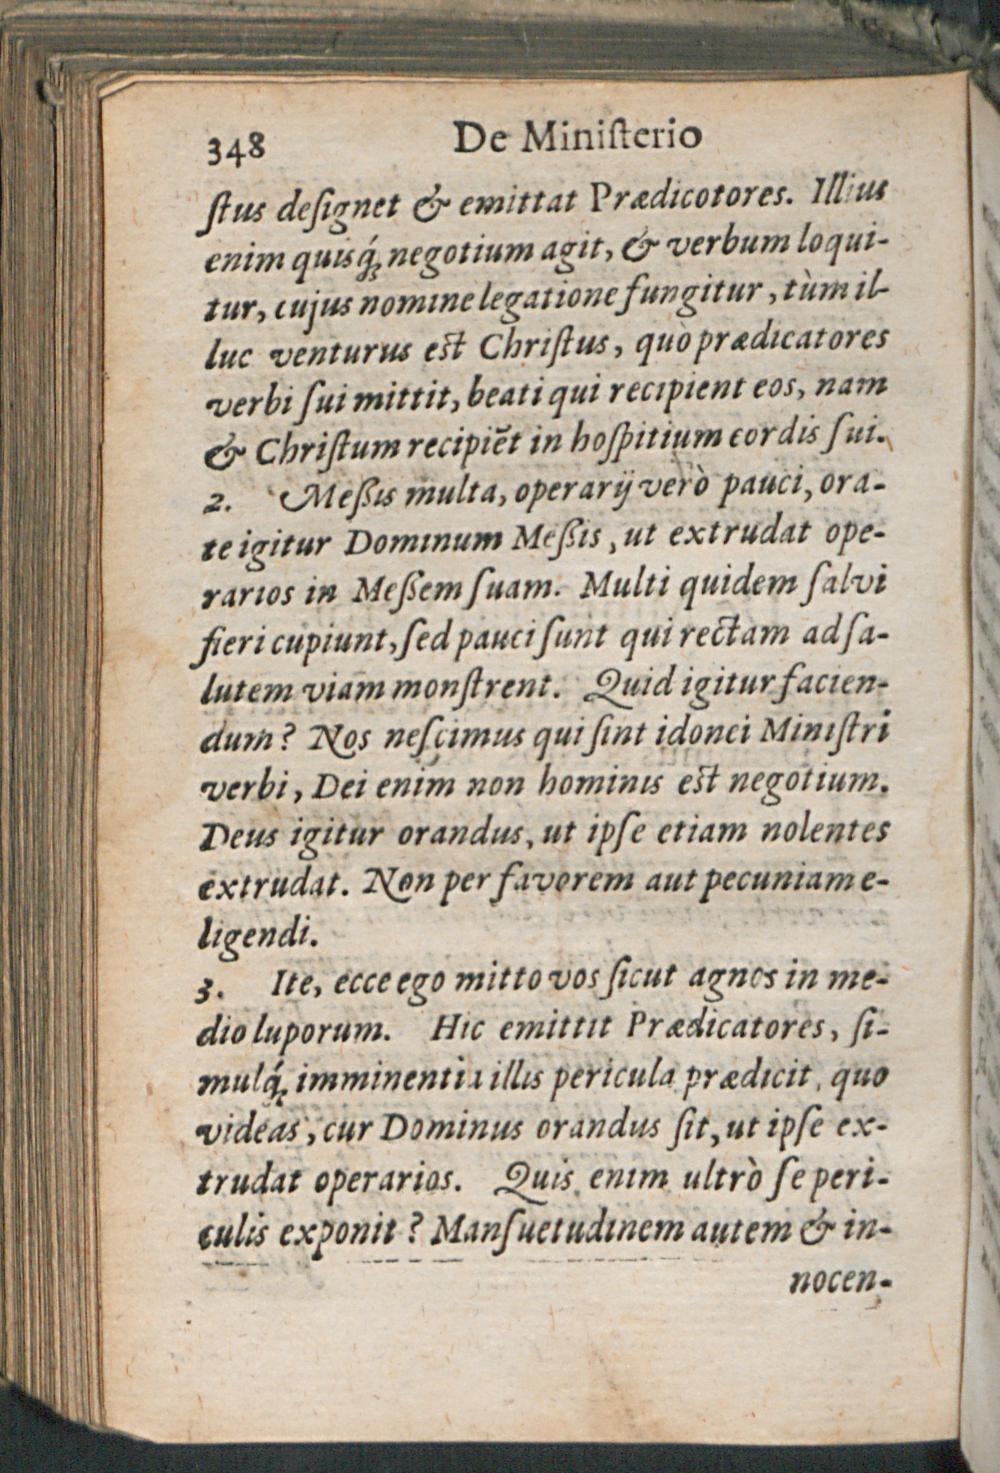 348 De Miniſterio
ſtus deſignet & emittat Prædicotores. Illius
enim quisq́; negotium agit, & verbum loqui-
tur, cujus nomine legatione fungitur, tùm il-
luc venturus eſt Chriſtus, quò prædicatores
verbi ſui mittit, beati qui recipient eos, nam
& Chriſtum recipiẽt in hoſpitium cordis ſui.
2. Meſſis multa, operarij verò pauci, ora-
te igitur Dominum Meſſis, ut extrudat ope-
rarios in Meſſem ſuam. Multi quidem ſalvi
fieri cupiunt, ſed pauci ſunt qui rectam ad ſa-
lutem viam monſtrent. Quid igitur facien-
dum? Nos neſcimus qui ſint idonei Miniſtri
verbi, Dei enim non hominis eſt negotium.
Deus igitur orandus, ut ipſe etiam nolentes
extrudat. Non per favorem aut pecuniam e-
ligendi.
3. Ite, ecce ego mitto vos ſicut agnos in me-
dio luporum. Hic emittit Prædicatores, ſi-
mulq́; imminentia illis pericula prædicit, quo
videas, cur Dominus orandus ſit, ut ipſe ex-
trudat operarios. Quis enim ultrò ſe peri-
culis exponit? Manſuetudinem autem & in-
nocen-